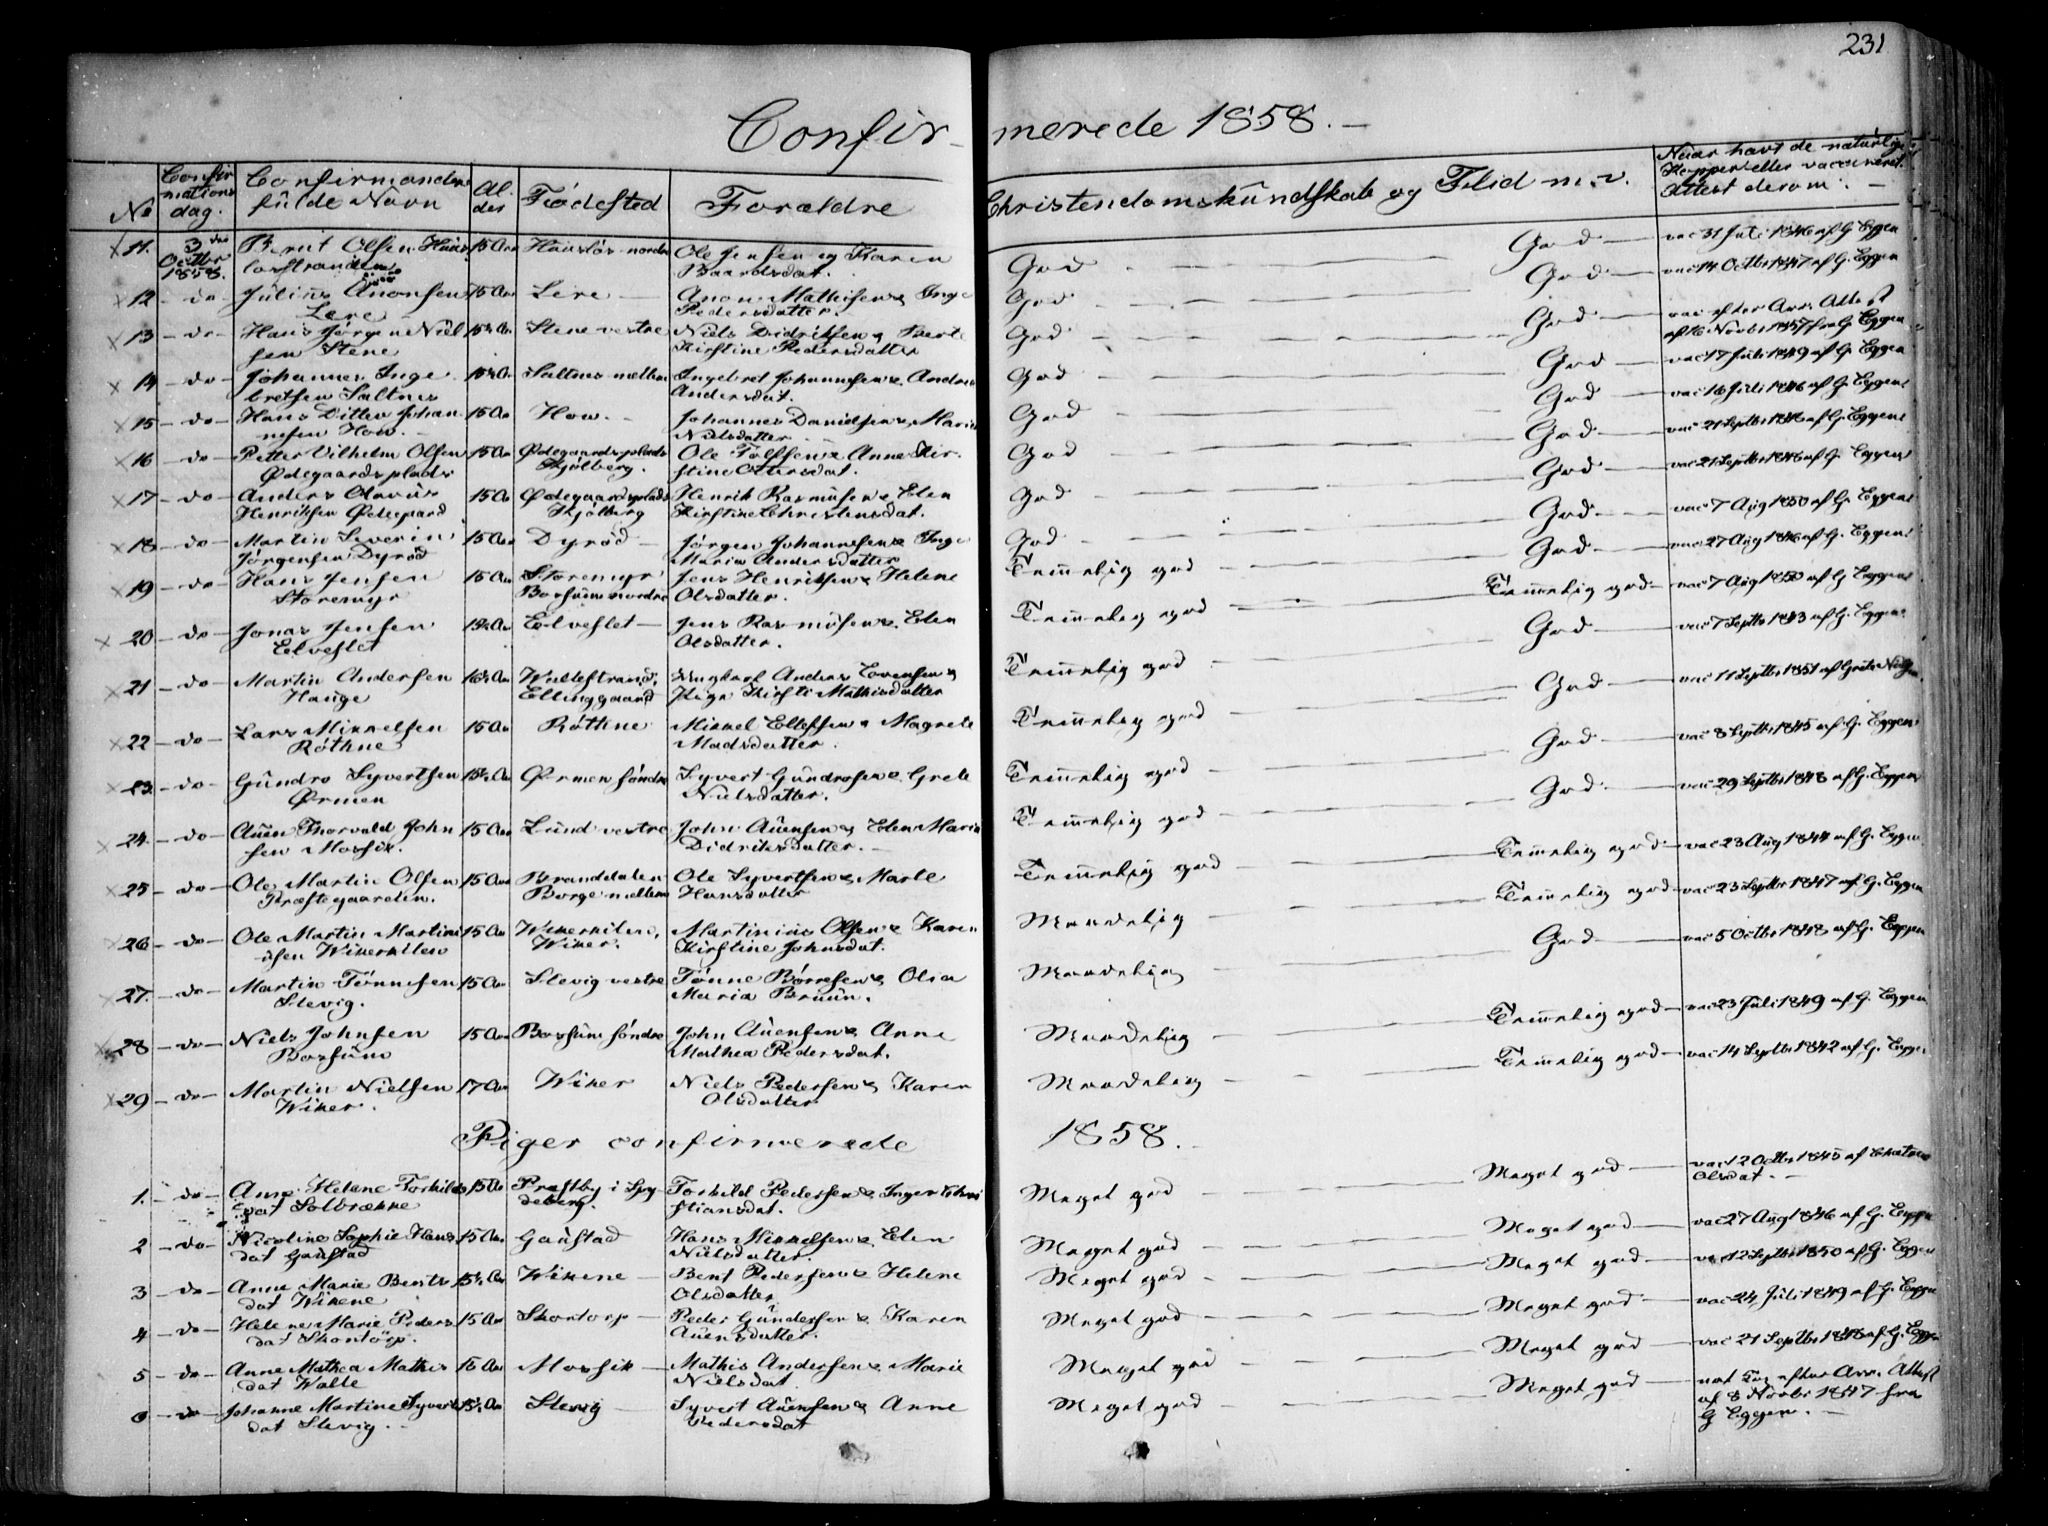 231
Confirmerede 1858.
No
Confirmations dag.
Confirmandens fulde Navn
Alder
Fødested
Forældre
Christendomskundskab og Flid m.v.
Naar havt de naturlige Kopper eller vaccineret. Attest derom.
11. 3die Octbr 1858. Bernt Olsen 15 Aar nordre Ole Jensen og Karen Baardsdat. God God vac 31 Juli 1846 af G. Eggen
12 do Julius Anonsen Lere 15 Aar Lere Anon Mathisen & Inge Pedersdatter. God God vac 14 Octbr 1847 af G. Eggen
13 do Hans Jørgen Nielsen Stene 15½ Aar Stene vestre Niels Didriksen & Berte Kirstine Pedersdatter God God vac efter Ann. Attest af 16 Novbr 1857 fra G. Eggen
14 do Johannes Ingebretsen Saltnes 15½ Aar Saltnes mellem Ingebret Johannesen & Andrea Andersdat. God God vac 17 Juli 1849 af G. Eggen
15 do Hans Ditlev Johannesen How. 15 Aar How. Johannes Danielsen & Maria Nielsdatter God God vac 16 Juli 1846 af G. Eggen
16 do Petter Vilhelm Olsen Ødegaardsplads 15 Aar Ødegaardsplads Kjølberg. Ole Tolfsen & Anne Kirstine Ottersdat. God God vac 21 Septbr 1846 af G. Eggen
17 do Anders Olavus Henriksen Ødegaard 15 Aar Ødegaardsplads Kjølberg Henrik Rasmusen & Elen Kirstine Christensdat. God God vac 21 Septbr 1846 af G. Eggen
18 do Martin Severin Jørgensen Dyrød 15 Aar Dyrød Jørgen Johannesen & Inge Maria Andersdatter God God vac 7 Aug 1850 af G. Eggen
19 do Hans Jensen Storemyr 15 Aar Storemyr Borsum nordre Jens Henriksen & Helene Olsdatter. Temmelig god God vac 27 Aug 1846 af G. Eggen
20 do Jonas Jensen Elveflet Elveflet Jens Rasmusen & Elen Olsdatter. Temmelig god Temmelig god vac 7 Aug 1850 af G. Eggen
21 do Martin Andersen Hauge 16½ Aar Ellinggaard Ungkarl Anders Evensen & Pige Kirsti Mathisdatter Temmelig god God vac 7 Septbr 1843 af G. Eggen
22 do Lars Mikkelsen Røthne 15 Aar Røthne Mikkel Ellefsen & Magrete Madsdatter. Temmelig god God vac 11 Septbr 1851 af Grete
23. do Gundro Syvertsen Ørmen 15½ Aar Ørmen søndre Syvert Gundrosen & Grete Nielsdatter. Temmelig god God vac 8 Septbr 1845 af G. Eggen
24. do Auen Thorvald Johnsen Mosfik. 15 Aar Lund vestre John Auensen & Elen Maria Didriksdatter. Temmelig god God vac 29 Septbr 1848 af G. Eggen
25 do Ole Martin Olsen Præstegaarden. 15 Aar Branddalen Borge mellem Ole Syvertsen & Marte Hansdatter Temmelig god Temmelig god vac 23 Aug 1844 af G. Eggen
26 do Ole Martin Martiniusen Wikerkilen 15 Aar Wikerkilen, Wiker. Martinius Olsen & Karen Kirstine Johnsdat. Maadelig Temmelig god vac 23 Septbr 1847 af G. Eggen
27. do Martin Tønnesen Slevig. 15 Aar Slevig vestre Tønne Børresen & Olia Maria Bruun. Maadelig God vac 5 Octbr 1848 af G. Eggen
28 do Niels Johnsen Borsum 15 Aar Borsum søndre John Auensen & Anne Mathea Pedersdat. Maadelig Temmelig god vac 23 Juli 1849 af G. Eggen
29 do Martin Nielsen Wiker. 17 Aar Wiker Niels Pedersen & Karen Olsdatter Maadelig Temmelig god vac 14 Septbr 1842 af G. Eggen
Piger confirmerede 1858.
1. do Anne Helene Torkildsdat Solbrække 15 Aar Præstby i Spydeberg. Torkild Pedersen & Inger Christiansdat. Meget god Meget god vac 12 Octbr 1845 af Olsdat.
2 do Nicoline Sophie Hansdat Gaustad 15 Aar Gaustad Hans Mikkelsen & Elen Nielsdatter. Meget god Meget god vac 27 Aug 1846 af G. Eggen
3 do Anne Marie Bentsdat Wikene 15½ Aar Wikene Bent Pedersen & Helene Olsdatter Meget god Meget god vac 12 Septbr 1850 af G. Eggen
4 do Helene Marie Pedersdat Skontorp. 15 Aar Skontorp Peder Gundersen & Karen Auensdatter. Meget god Meget god vac 24 Juli 1849 af G. Eggen
5 do Anne Mathea Mathisdat Walle 15 Aar Mosfik Mathis Andersen & Marie Nielsdat Meget god Meget god vac 21 Septbr 1846 af G. Eggen
6 do Johanne Martine Syvertsdat Slevig. 15½ Aar Slevig Syvert Auensen & Anne Pedersdat Meget god Meget god efter Ann. Attest af 8 Novbr 1847 fra G Eggen.